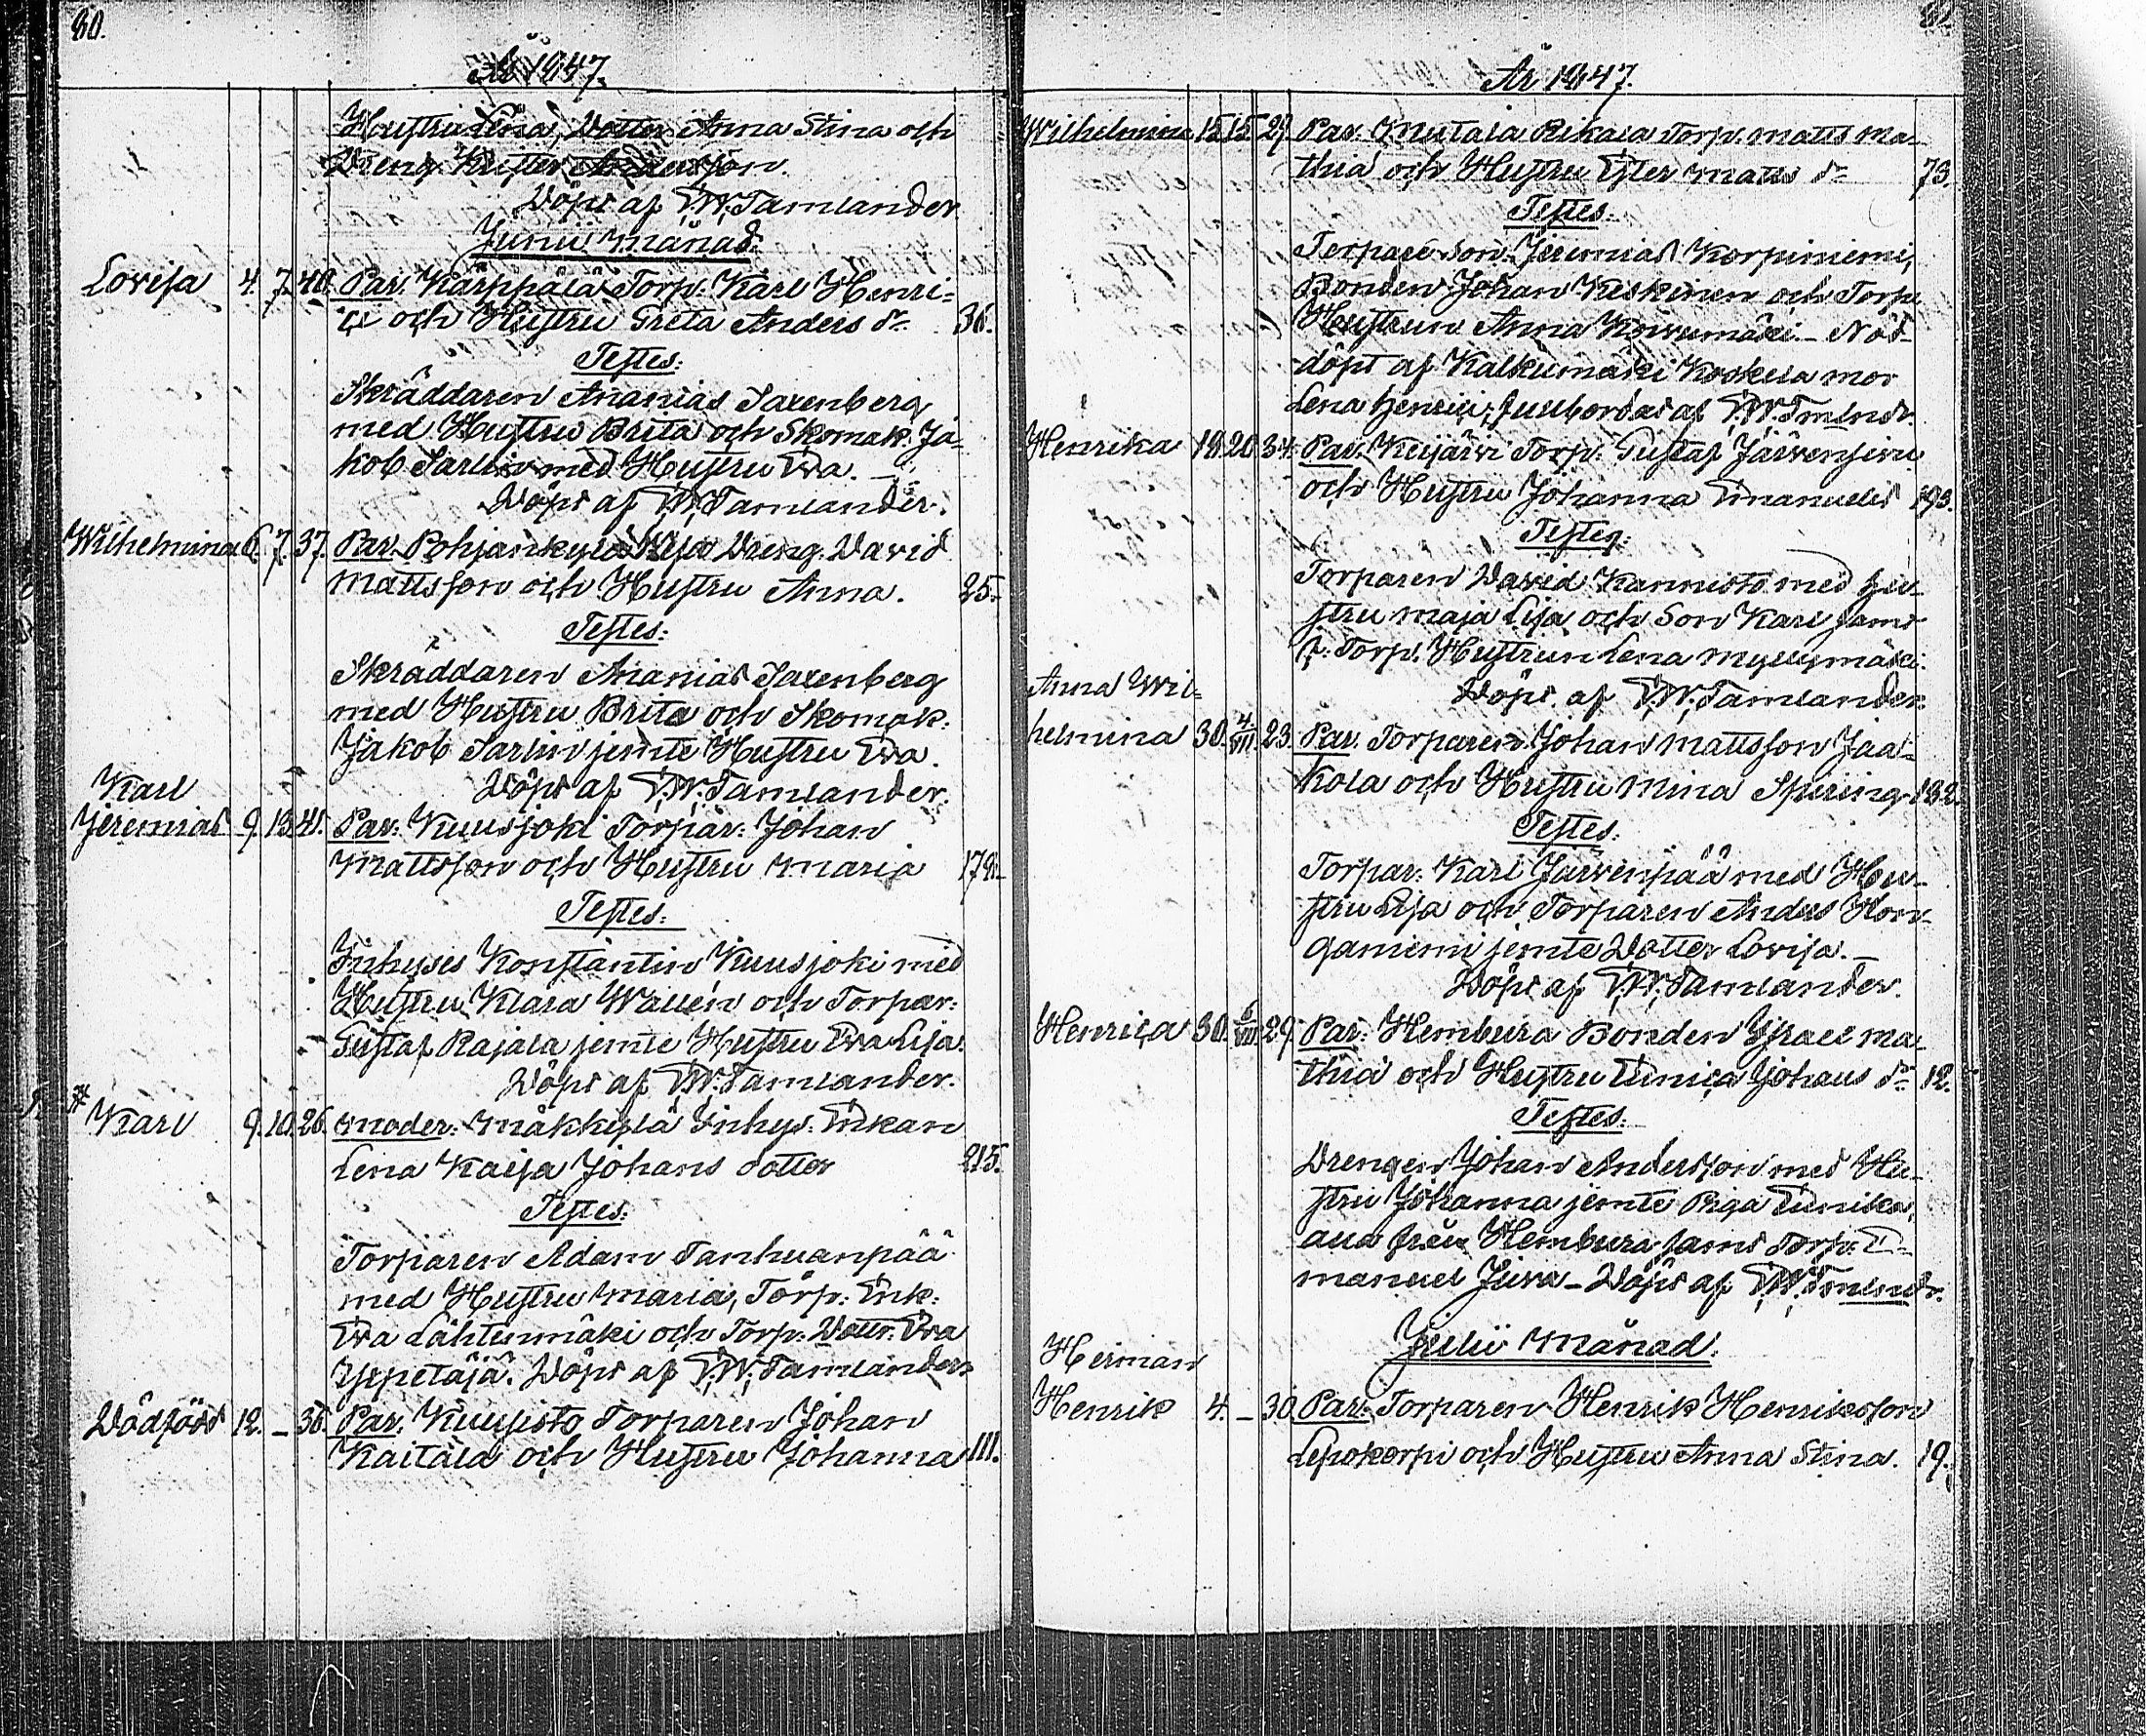 80.
År 1847.
Hustru Lena, Dotter Anna Stina och
Dreng. Kuster Andersson.
Döpt af F.W. Tamlander
Junii Månad.
Lovisa 4. 7. 40. Par. Kärppälä Torp. Karl Henri=
ci och Hustru Greta Anders dr. 36.
Testes:
Skräddaren Ananias Saxenberg
med Hustru Brita och Skomak. Ja-
kob Sarlin med Hustru Eva. —
Döpt af F.W. Tamlander.
Wilhelmina 6. 7. 37. Par. Pohjankylä Dreng. David
Mattsson och Hustru Anna. 25.
Testes:
Skräddaren Ananias Saxenberg
med Hustru Brita och Skomak:
Jakob Sarlin jemte Hustru Eva.
Döpt af F.W. Tamlander.
Karl
Jeremias 9. 13. 41. Par: Kuusjoki Torpar: Johan
Mattsson och Hustru Maria 179.
Testes:
Inhyses Konstantin Kuusjoki med
Hustru Klara Wallén och Torpar:
Gustaf Rajala jemte Hustru Eva Lisa.
Döpt af F.W. Tamlander.
Karl 9. 10. 26. Moder: Mäkkylä Inhys. Enkan
Lena Kaisa Johans dotter 215.
Testes:
Torparen Adam Tanhuanpää
med Hustru Maria, Torp: Enk:
Eva Lähtenmäki och Torp: Dottr. Eva
Yppetäjä. Döpt af F.W. Tamlander
Dödfödd 12. — 36. Par. Kuusisto Torparen Johan
Kaitala och Hustru Johanna 111.
81.
År 1847.
Wilhelmina 15. 15. 29. Par: Mutala Rikala Torp. Matts Ma-
thiæ och Hustru Ester Matts dr 73.
Testes.
Torpare Son Jeremias Korpiniemi,
Bonden Johan Keskinen och Torp.
Hustrun Anna Koivumäki — Nöd-
döpt af Kalkumäki Koskela mor
Lena Henrici; fullbordad af F.W. Tmlndr.
Henrika 18. 20. 34. Par. Keijärvi Torp. Gustaf Järvensivu
och Hustru Johanna Emanuels 193.
Testes:
Torparen David Kannisto med hu-
stru Maja Lisa och Son Karl samt
f: Torp. Hustrun Lena Myllymäki.
Döpt af F.W. Tamlander.
Anna Wil=
helmina 30. 4/VII. 23. Par. Torparen Johan Mattsson Jaa-
kola och Hustru Mina Spiring 132.
Testes.
Torpar: Karl Järvenpää med Hu-
stru Lisa och Torparen Anders Hon-
ganiemi jemte Dotter Lovisa. —
Döpt af F.W. Tamlander.
Henrica 30. 6/VII. 29. Par: Hembura Bonden Israel Ma-
thiæ och Hustru Eunica Johans dr 12.
Testes.
Drengen Johan Andersson med Hu-
stru Johanna jemte Piga Eunika,
alla från Hembura samt Torp: E-
manuel Juva — Döpt af F.W. Tmlndr.
Julii Månad.
Herman
Henrik 4. — 30. Par: Torparen Henrik Henriksson
Lepokorpi och Hustru Anna Stina. 19.